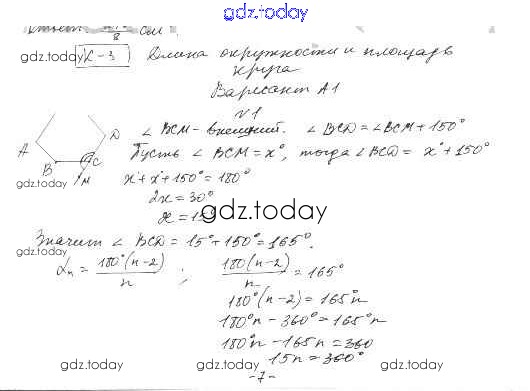 gdz.today
8 см.
К-3 Длина окружности и площадь
круга
Вариант А1
№1
A B C D M
∠BCM - внешний. ∠BCD = ∠BCM + 150°
Пусть ∠BCM = x°, тогда ∠BCD = x° + 150°
x° + x° + 150° = 180°
2x = 30°
x = 15°
gdz.today
Значит ∠BCD = 15° + 150° = 165°.
αn = 180°(n-2)/n ; 180°(n-2)/n = 165°
180°(n-2) = 165°n
180°n - 360° = 165°n
180°n - 165n = 360
15n = 360°
-7-
gdz.today
gdz.today
gdz.today
gdz.today
gdz.today
gdz.today